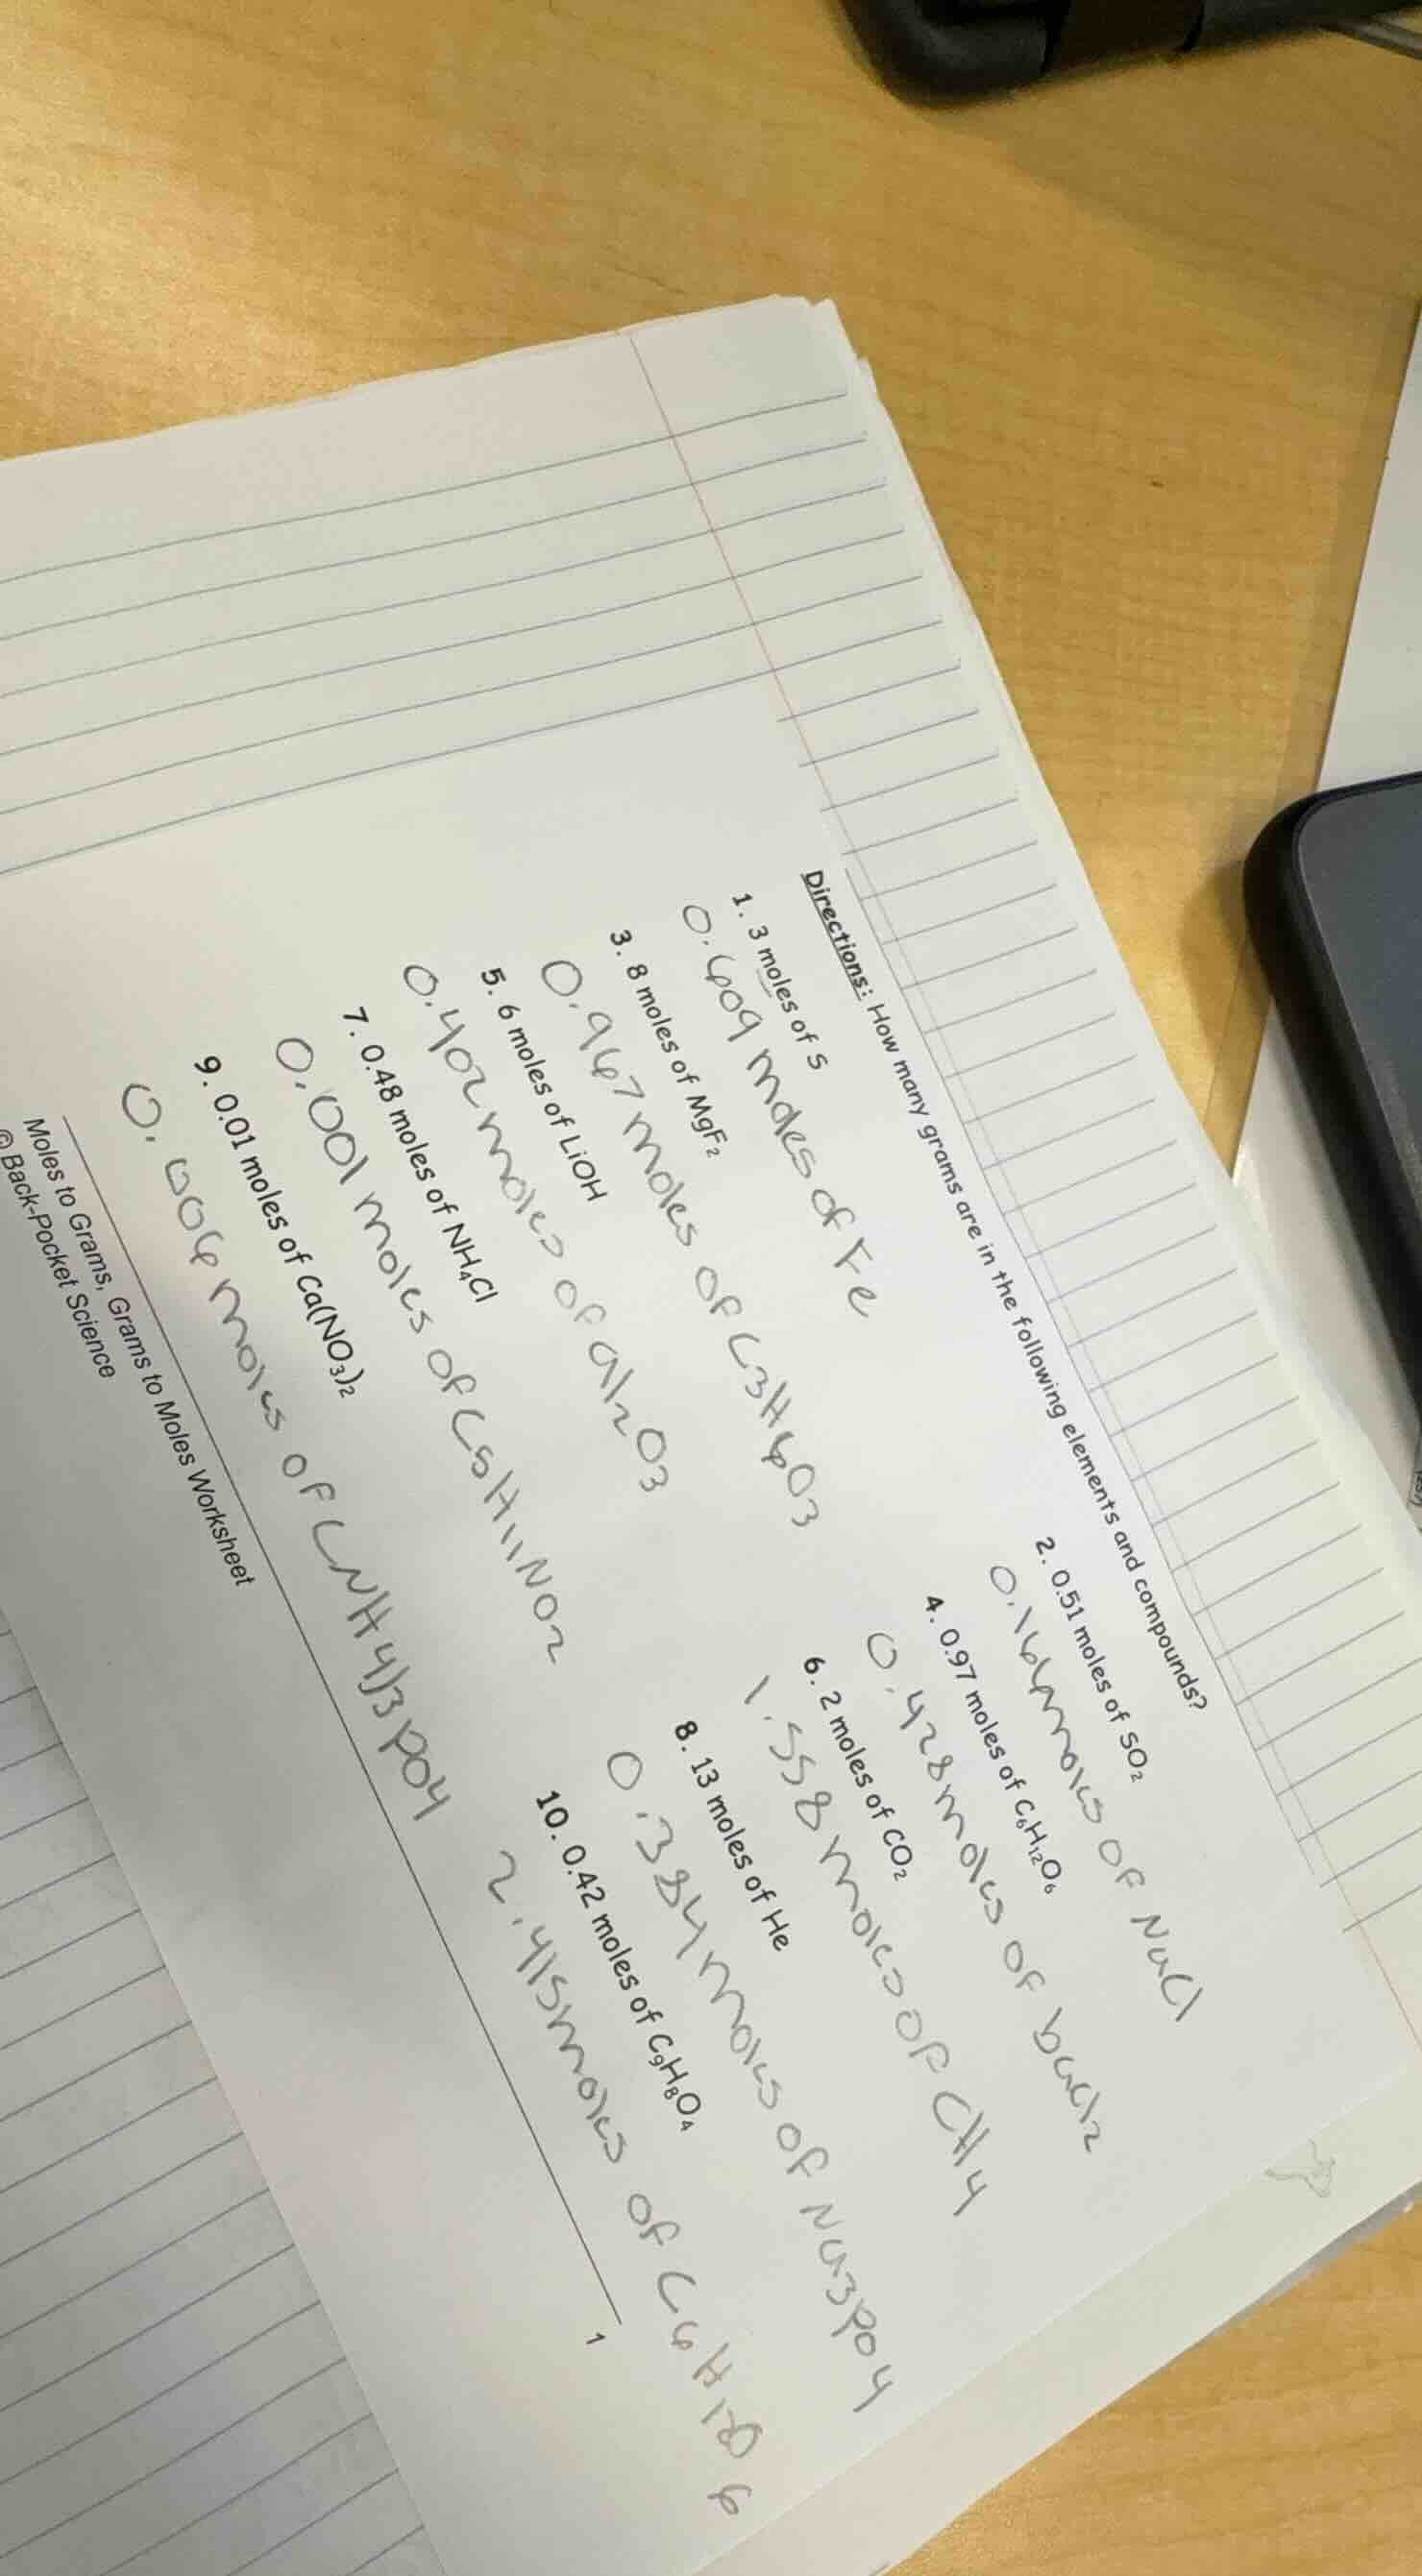 Directions: How many grams are in the following elements and compounds?
1. 3 moles of S
0.609 moles of Fe
2. 0.51 moles of SO₂
0.166 moles of NaCl
3. 8 moles of MgF₂
0.967 moles of C3H6O3
4. 0.97 moles of C₆H₁₂O₆
0.428 moles of bacl2
5. 6 moles of LiOH
0.402 moles of al2O3
6. 2 moles of CO₂
1.558 moles of CH4
7. 0.48 moles of NH₄Cl
0.001 moles of C5H11NO2
8. 13 moles of He
0.384 moles of Na3PO4
9. 0.01 moles of Ca(NO₃)₂
0.006 moles of (NH4)3PO4
10. 0.42 moles of C₉H₈O₄
2.415 moles of C6H12O6
Moles to Grams, Grams to Moles Worksheet
© Back-Pocket Science
1